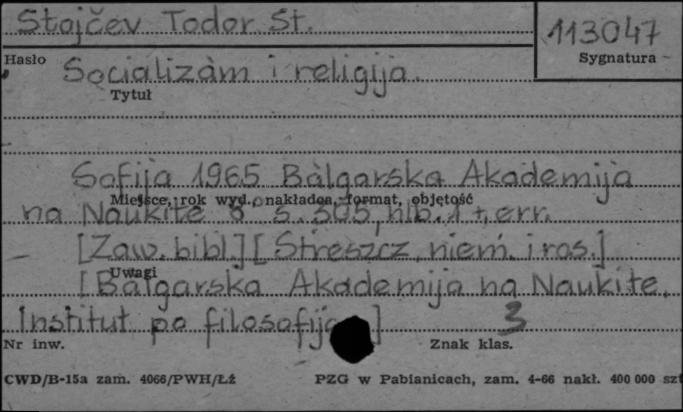 Stojčev Todor St.
113047
Hasło
Sygnatura
Socializàm i religija.
Tytuł
Sofija 1965 Bàlgarska Akademija
Miejsce, rok wyd., nakładca, format, objętość
na Naukite 8° s. 305, nlb. 1 +, err.
[Zaw. bibl.] [Streszcz. niem. i ros.]
Uwagi
[Bàlgarska Akademija na Naukite.
Institut po filosofija.]
3
Nr inw.
Znak klas.
CWD/B-15a zam. 4066/PWH/Łź
PZG w Pabianicach, zam. 4-66 nakł. 400 000 szt